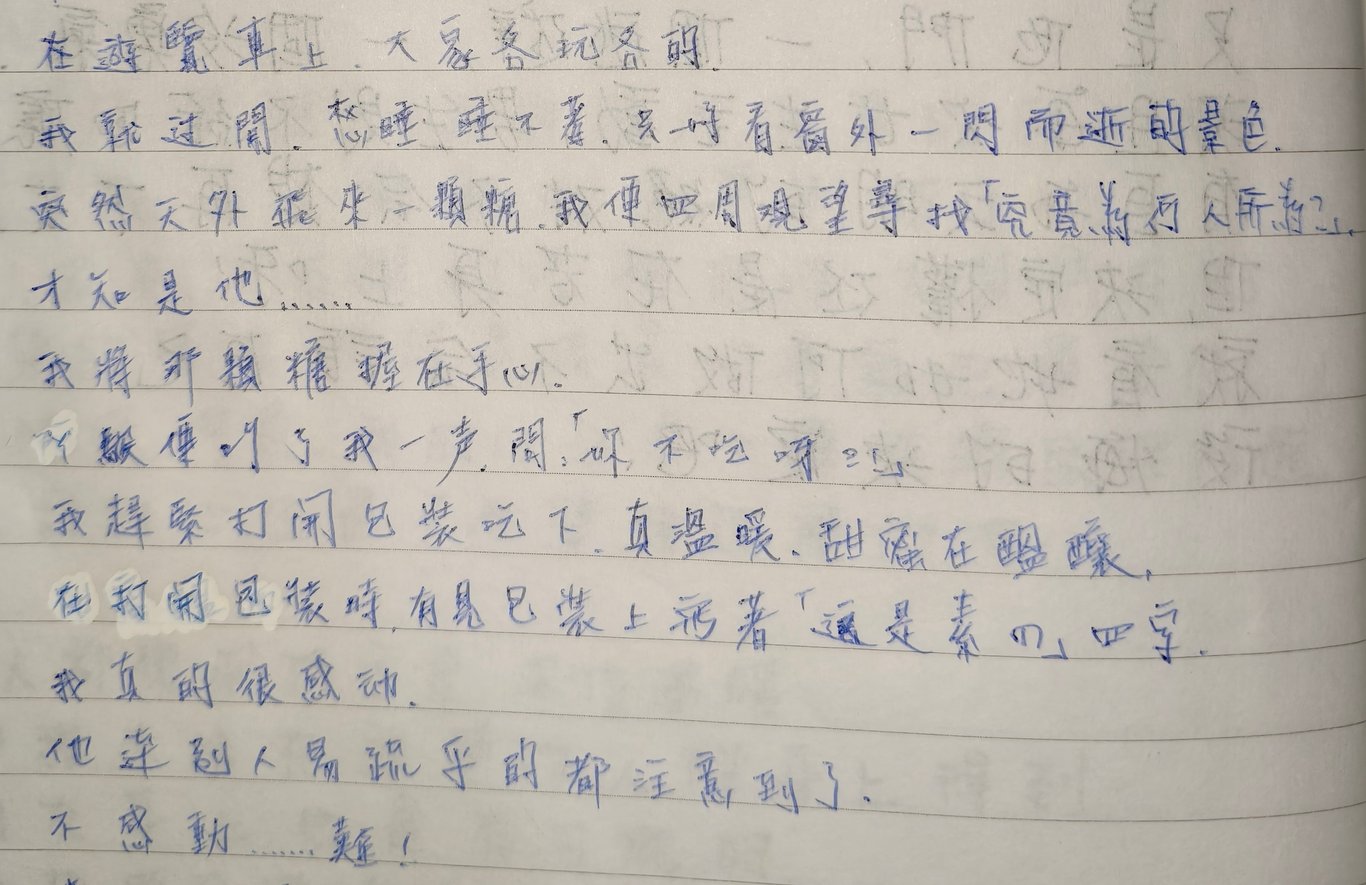 在遊覽車上，大家各玩各的.
我靠过閉，想睡，睡不著，只好看窗外一閃而逝的景色.
突然天外飛來一顆糖，我便四周观望尋找「究竟為何人所為?」.
才知是他......
我將那顆糖握在手心.
便叫了我一声，問：「你不吃呀?」
我趕緊打開包裝吃下，真溫暖，甜蜜在醞釀，
在打開包裝時，有見包裝上写著「這是素的」四字.
我真的很感动.
他連別人易疏乎的都注意到了.
不感動......難!